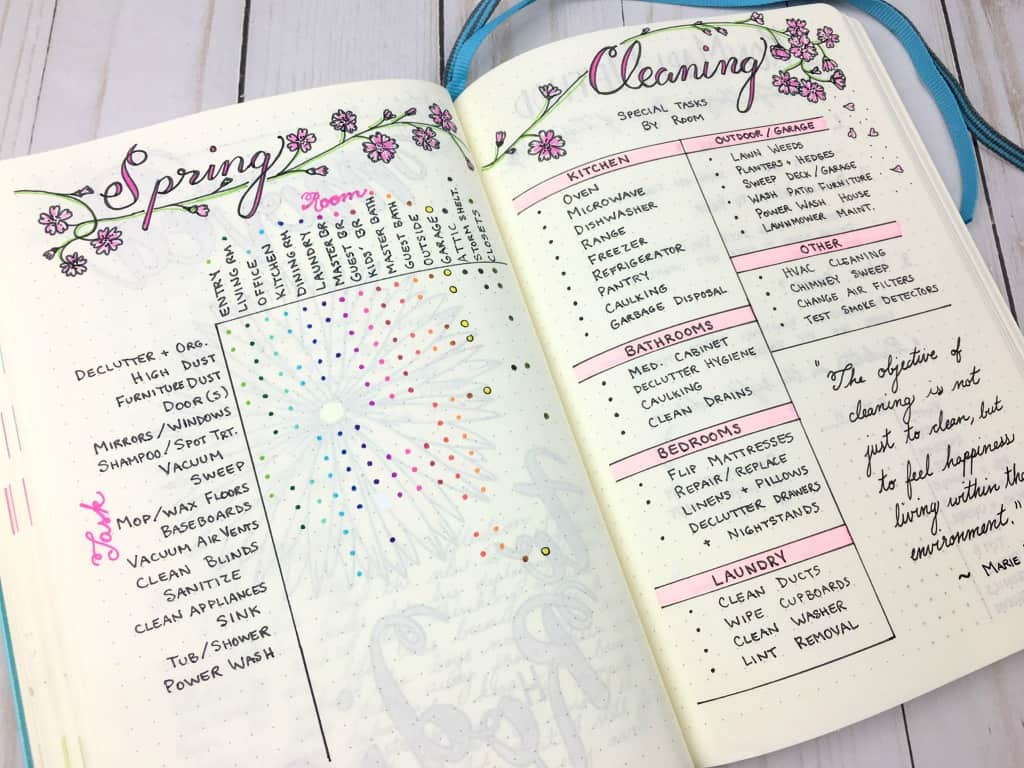 Spring
Room
ENTRY
LIVING RM
OFFICE
KITCHEN
DINING RM
LAUNDRY
MASTER BR
GUEST BR
KIDS' BATH
MASTER BATH
GUEST BATH
OUTSIDE
GARAGE
ATTIC
SHELT.
CLOSETS
Task
DECLUTTER + ORG.
HIGH DUST
FURNITURE DUST
DOOR(S)
MIRRORS/WINDOWS
SHAMPOO/SPOT TRT.
VACUUM
SWEEP
MOP/WAX FLOORS
BASEBOARDS
VACUUM AIR VENTS
CLEAN BLINDS
SANITIZE
CLEAN APPLIANCES
SINK
TUB/SHOWER
POWER WASH
Cleaning
SPECIAL TASKS
BY ROOM
KITCHEN
• OVEN
• MICROWAVE
• DISHWASHER
• RANGE
• FREEZER
• REFRIGERATOR
• PANTRY
• CAULKING
• GARBAGE DISPOSAL
BATHROOMS
• MED. CABINET
• DECLUTTER HYGIENE
• CAULKING
• CLEAN DRAINS
BEDROOMS
• FLIP MATTRESSES
• REPAIR/REPLACE
LINENS + PILLOWS
• DECLUTTER DRAWERS
+ NIGHTSTANDS
LAUNDRY
• CLEAN DUCTS
• WIPE CUPBOARDS
• CLEAN WASHER
• LINT REMOVAL
OUTDOOR/GARAGE
• LAWN WEEDS
• PLANTERS + HEDGES
• SWEEP DECK/GARAGE
• WASH PATIO FURNITURE
• POWER WASH HOUSE
• LAWNMOWER MAINT.
OTHER
• HVAC CLEANING
• CHIMNEY SWEEP
• CHANGE AIR FILTERS
• TEST SMOKE DETECTORS
"The objective of
cleaning is not
just to clean, but
to feel happiness
living within the
environment."
~ MARIE